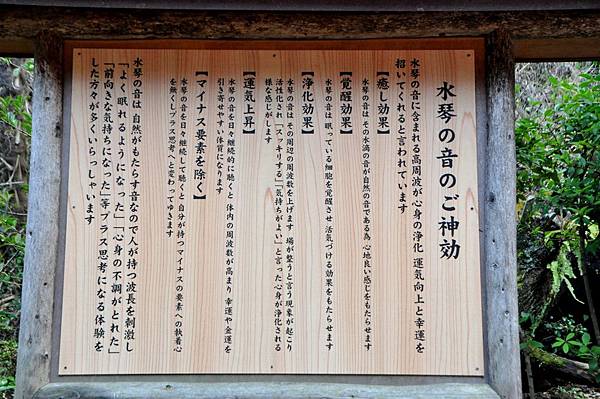 水琴の音のご神効
水琴の音に含まれる高周波が心身の浄化 運気向上と幸運を
招いてくれると言われています
【癒し効果】
水琴の音はその水滴の音が自然の音である為 心地良い感じをもたらせます
【覚醒効果】
水琴の音は 眠っている細胞を覚醒させ 活気づける効果をもたらせます
【浄化効果】
水琴の音は その周辺の周波数を上げます 場が整うと言う現象が起こり
活性化され「スッキリする」「気持ちがよい」と言った心身が浄化される
様な感じがします
【運気上昇】
水琴の音を日々継続的に聴くと 体内の周波数が高まり 幸運や金運を
引き寄せやすい体質になります
【マイナス要素を除く】
水琴の音を日々継続して聴くと 自分が持つマイナスの要素への執着心
を無くしプラス思考へと変わってゆきます
水琴の音は 自然がもたらす音なので人が持つ波長を刺激し
「よく眠れるようになった」「心身の不調がとれた」
「前向きな気持ちになった」等 プラス思考になる体験を
した方々が多くいらっしゃいます